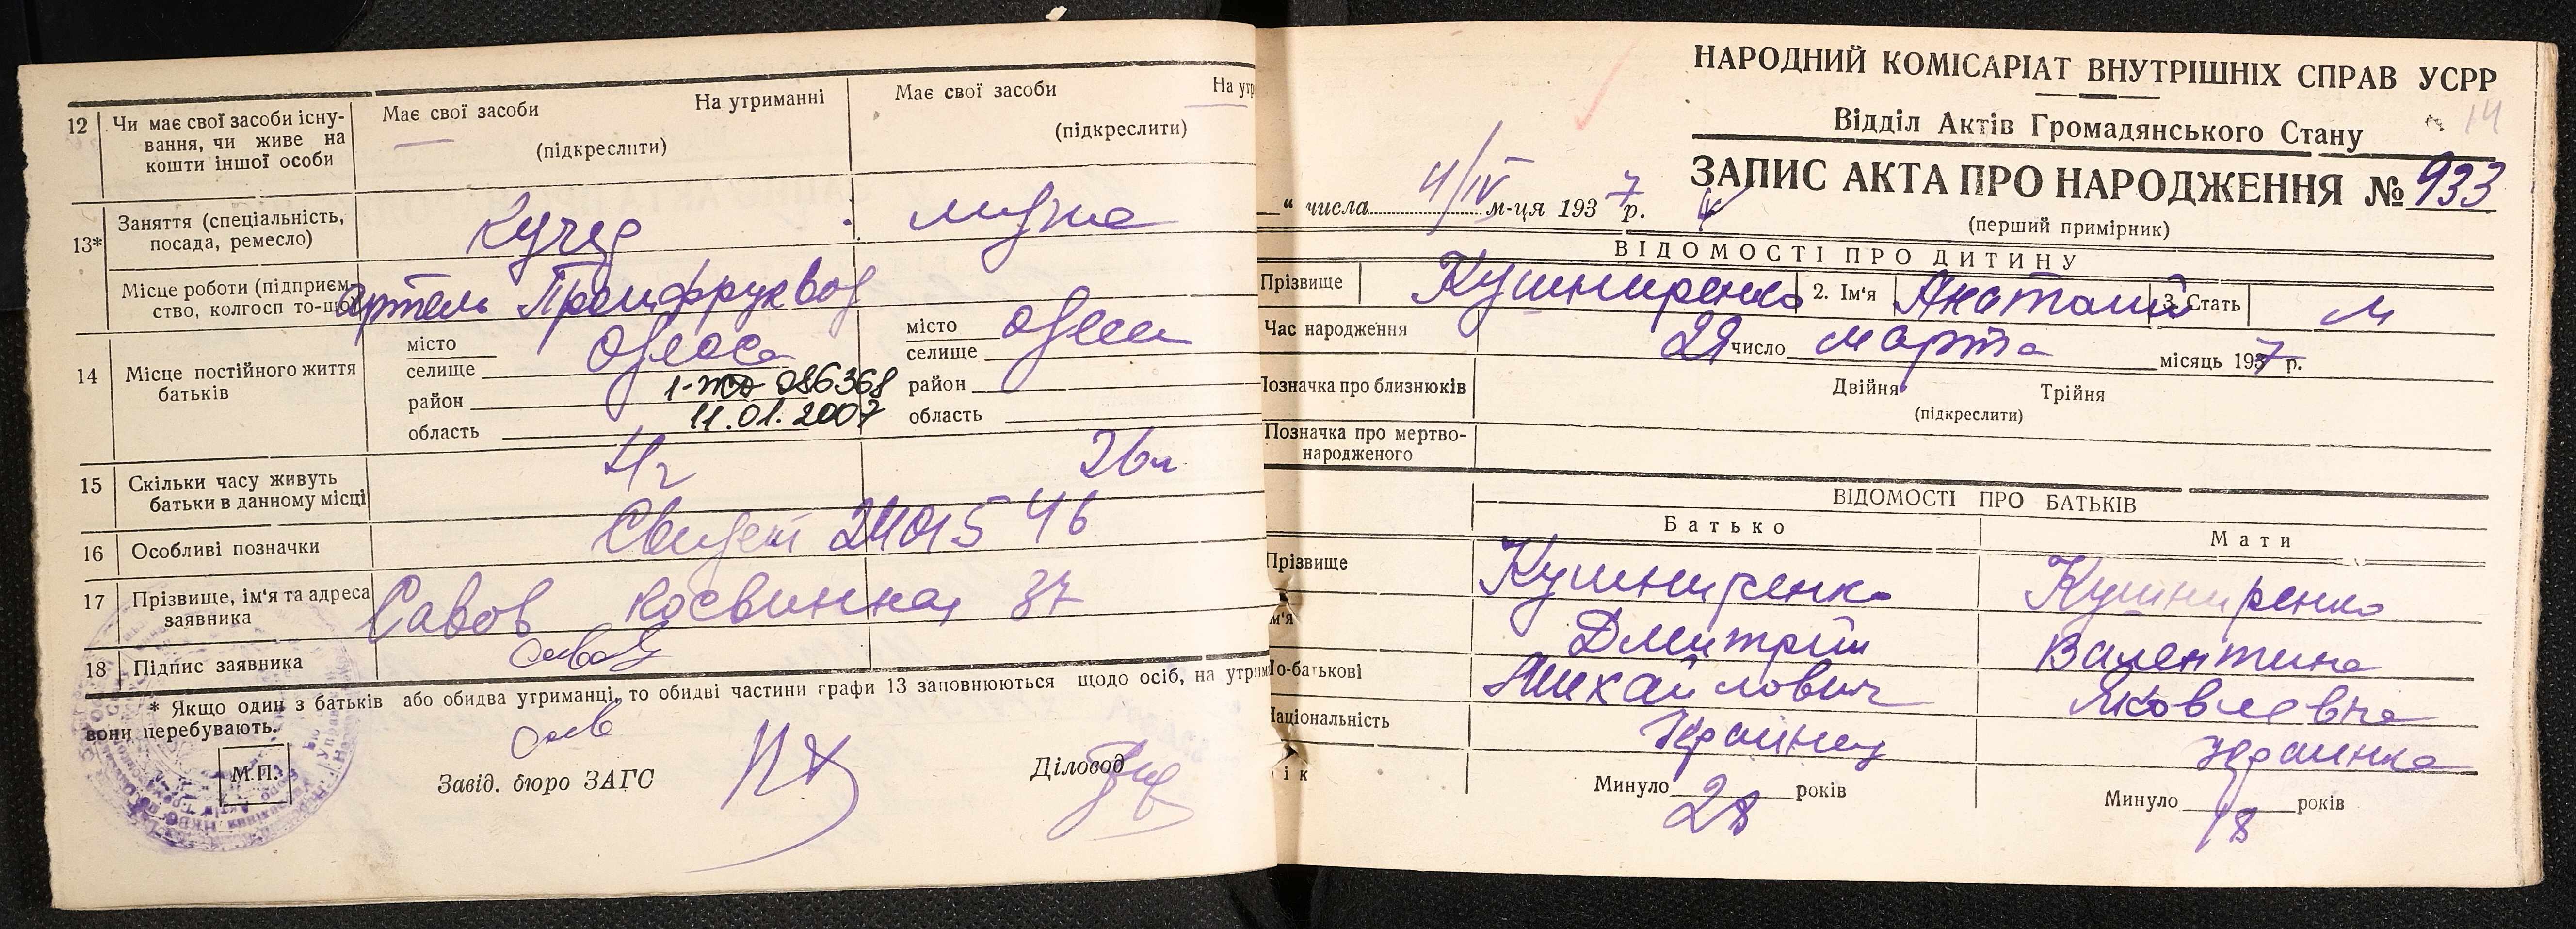 12 Чи має свої засоби існу-
вання, чи живе на
кошти іншої особи
Має свої засоби На утриманні
(підкреслити)
Має свої засоби На утр
(підкреслити)
13* Заняття (спеціальність,
посада, ремесло)
Кучер
Місце роботи (підприєм-
ство, колгосп то-що)
артель
14 Місце постійного життя
батьків
місто Одеса
селище
район
область
1-ЖД 086368
11.01.2007
місто Одеса
селище
район
область
15 Скільки часу живуть
батьки в данному місці
4 г
16 Особливі позначки
Свидет 2401546
17 Прізвище, ім'я та адреса
заявника
Савов Косвинная 37
18 Підпис заявника
Савов
* Якщо один з батьків або обидва утриманці, то обидві частини графи 13 заповнюються щодо осіб, на утрим
вони перебувають.
М.П.
Завід. бюро ЗАГС
Діловод
НАРОДНИЙ КОМІСАРІАТ ВНУТРІШНІХ СПРАВ УСРР
14
Відділ Актів Громадянського Стану
ЗАПИС АКТА ПРО НАРОДЖЕННЯ № 933
" числа 4/IV м-ця 1937 р.
(перший примірник)
ВІДОМОСТІ ПРО ДИТИНУ
Прізвище Кушниренко 2. Ім'я Анатолий 3. Стать м
Час народження 29 число марта місяць 1937 р.
Позначка про близнюків Двійня Трійня
(підкреслити)
Позначка про мертво-
народженого
ВІДОМОСТІ ПРО БАТЬКІВ
Батько Мати
Прізвище Кушниренко Кушниренко
м'я Дмитрий Валентина
По-батькові Михайлович Яковлевна
Національність Украинец Украинка
ік Минуло 28 років Минуло 18 років